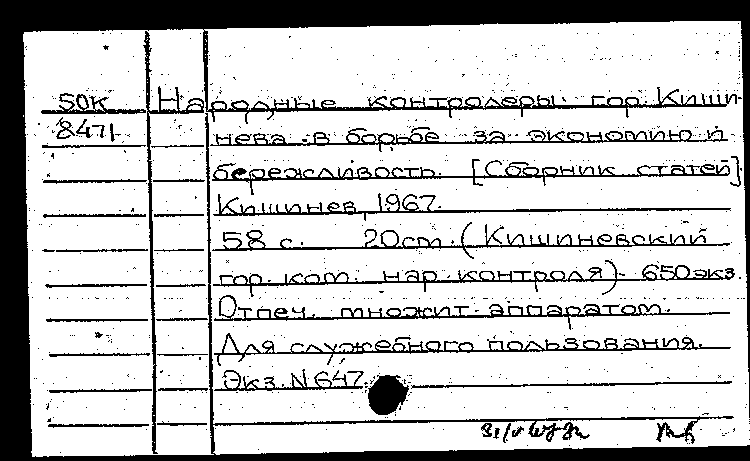 50К Народные контролеры гор. Киши
8471 нева в борьбе за экономию и
бережливость. [Сборник статей]
Кишинев, 1967.
58 с. 20cm. (Кишиневский
гор. ком. нар. контроля). 650экз.
Отпеч. множит. аппаратом.
Для служебного пользования.
Экз. N647.